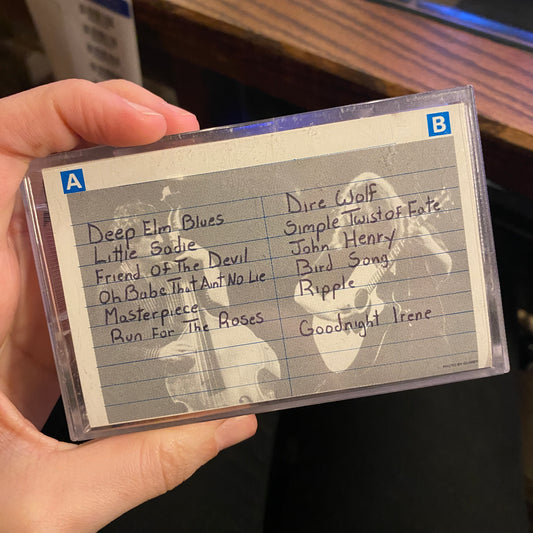 A
B
Deep Elm Blues
Little Sadie
Friend Of The Devil
Oh Babe That Aint No Lie
Masterpiece
Run For The Roses
Dire Wolf
Simple Twist Of Fate
John Henry
Bird Song
Ripple
Goodnight Irene